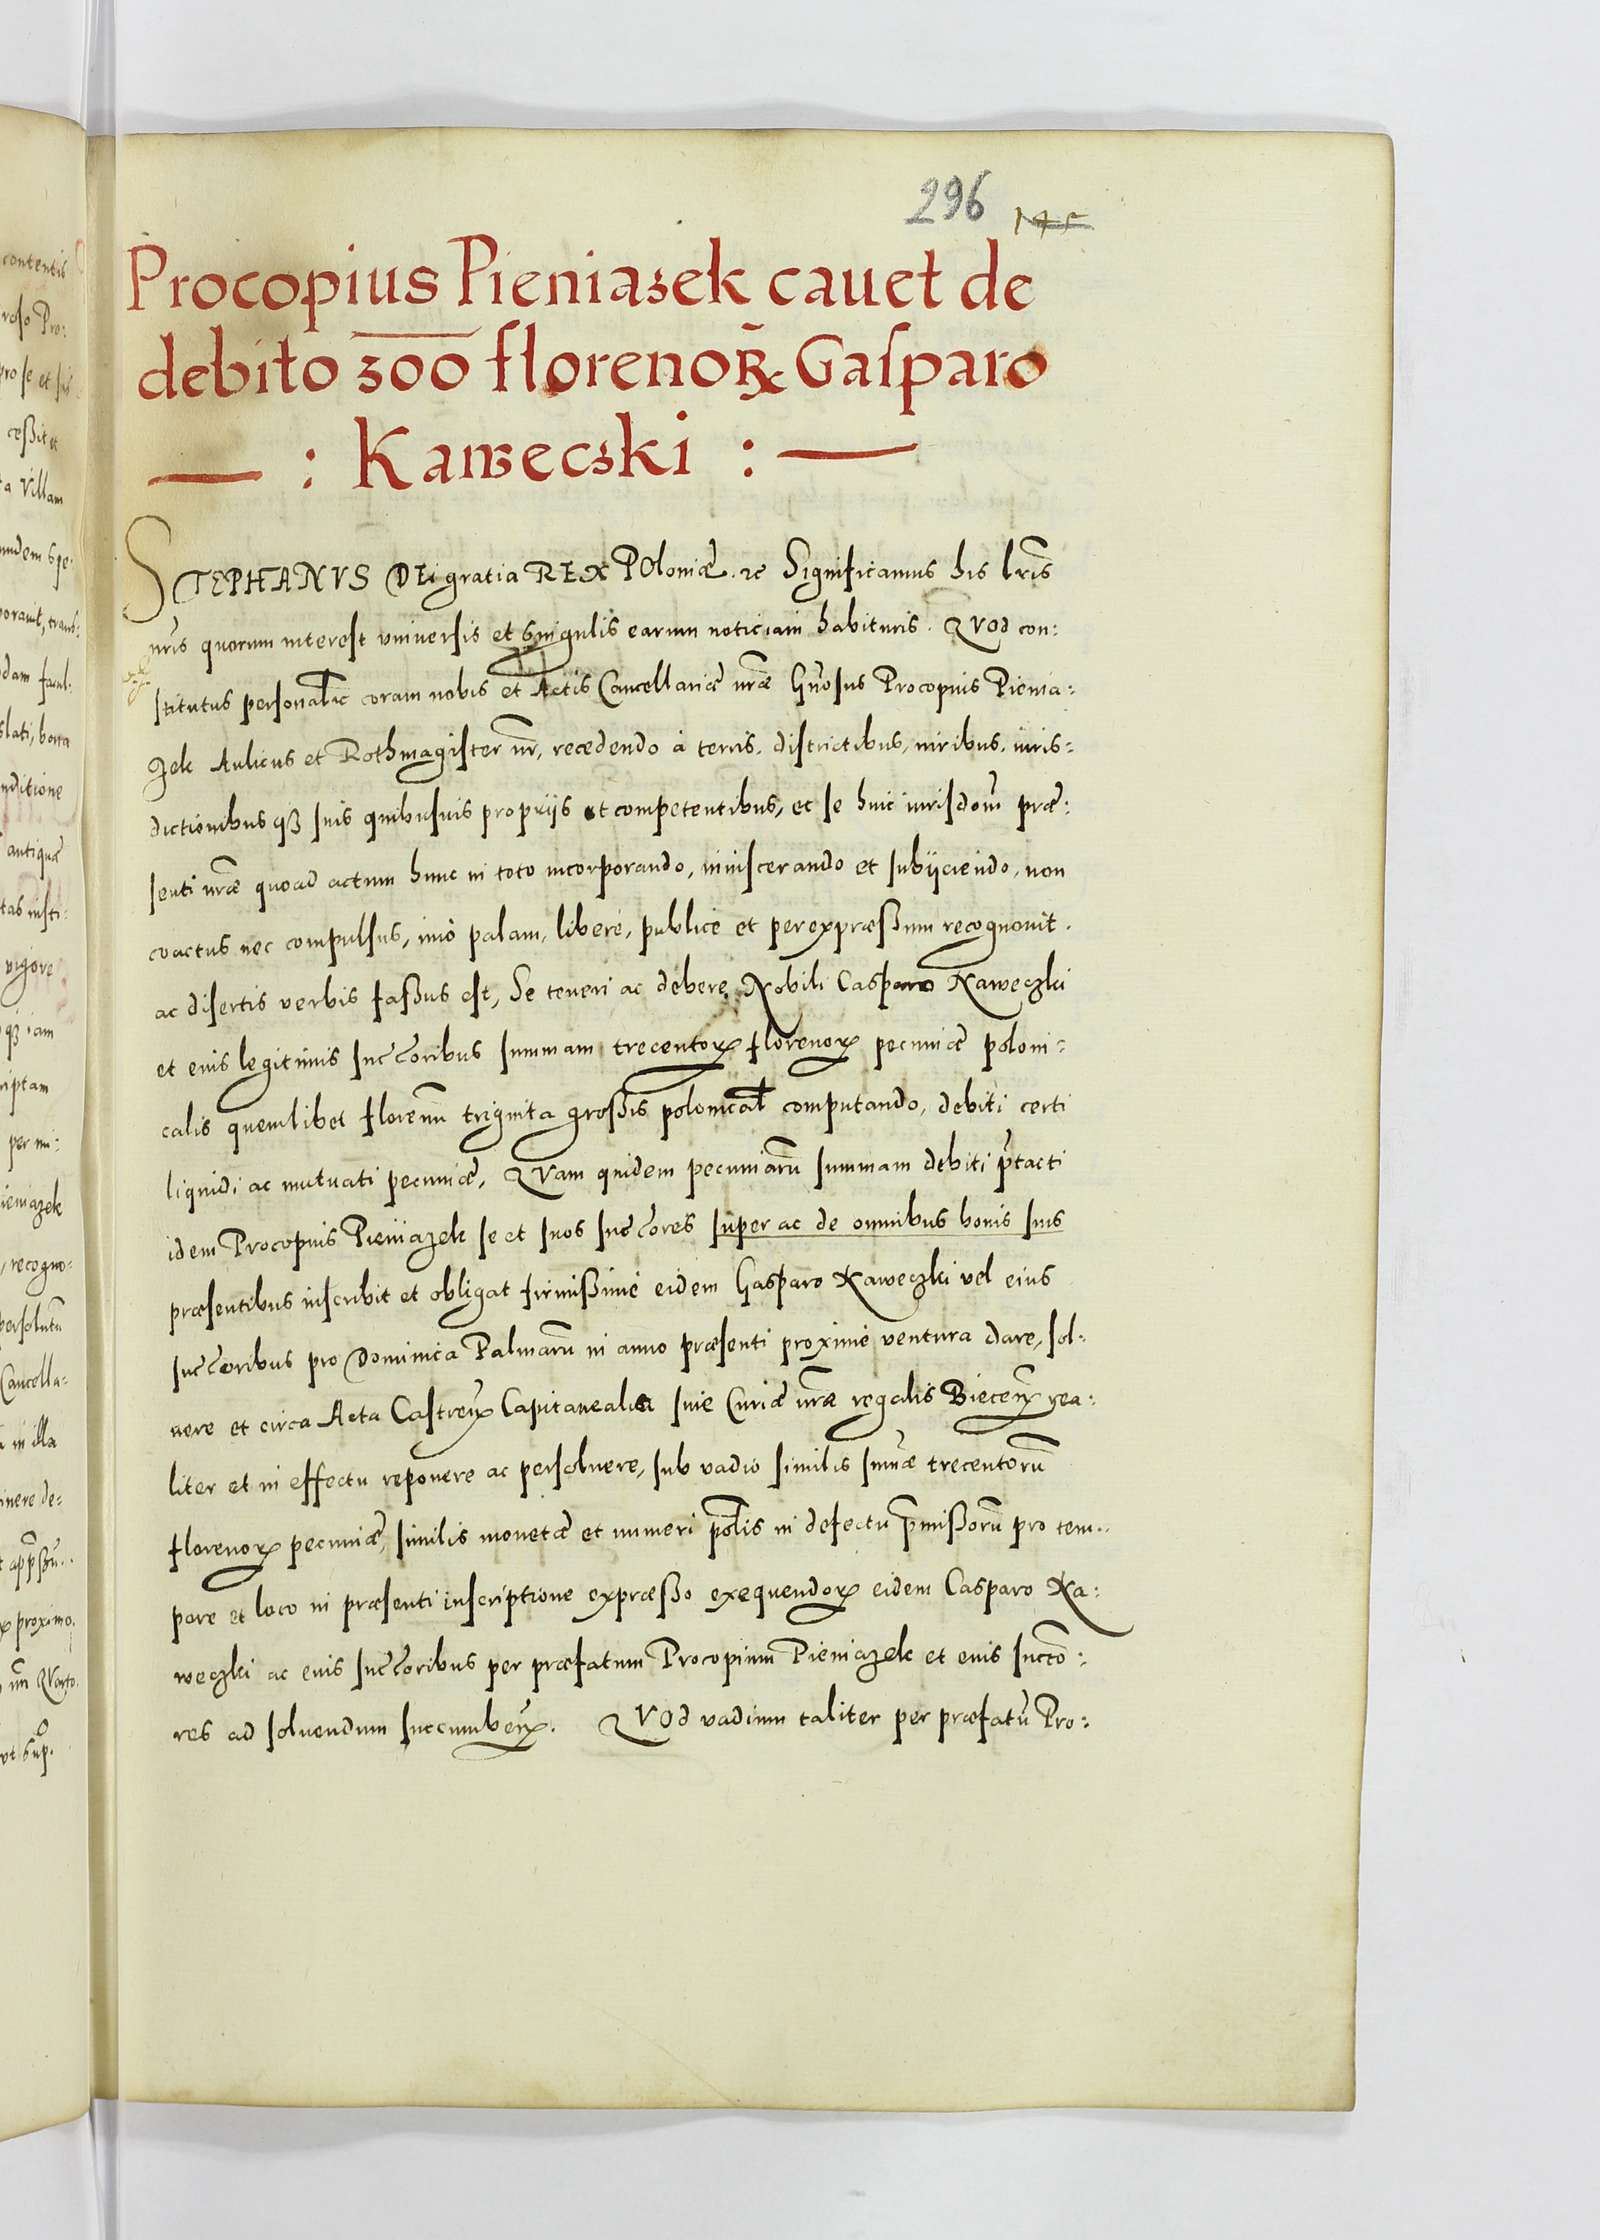 296 145
Procopius Pieniazek cauet de
debito 300 florenoꝝ Gasparo
— : Kaweczki : —
STEPHANVS DEi gratia REX POloniæ. ꝛc Significamus his lr̃is
nr̃is quorum interest vniuersis et singulis earum noticiam habituris. QVOd con:
stitutus personalr̃ coram nobis et Actis Cancellariæ nr̃æ Gn̄osus Procopius Pienia:
zek Aulicus et Rothmagister nr̃, recedendo à terris, districtibus, iuribus, iuris:
dictionibus qꝫ suis quibusuis proprijs et competentibus, et se huic iurisdoni præ:
senti nr̃æ quoad actum hunc in toto incorporando, inuiscerando et subijciendo, non
coactus nec compulsus, imò palam, liberè, publicè et per expræßum recognouit.
ac disertis verbis faßus est, Se teneri ac debere Nobili Casparo Kaweczki
et eius legitimis succ̃oribus summam trecentoꝝ florenoꝝ pecuniæ poloni:
calis quemlibet florenũ triginta großis polonical̃ computando, debiti certi
liquidi ac mutuati pecuniæ, QVam quidem pecuniarũ summam debiti p̃tacti
idem Procopius Pieniazek se et suos succ̃ores super ac de omnibus bonis suis
præsentibus inscribit et obligat firmißimè eidem Gasparo Kaweczki vel eius
succ̃oribus pro Dominica Palmarũ in anno præsenti proximè ventura dare, sol:
uere et circa Acta Castren̄ Capitanealia siue Curiæ nr̃æ regalis Biecen̄ rea:
liter et in effectu reponere ac persoluere, sub vadio similis sum̃æ trecentorũ
florenoꝝ pecuniæ, similis monetæ et numeri pol̃is in defectu p̃mißorũ pro tem:
pore et loco in præsenti inscriptione expræßo exequendoꝝ eidem Casparo Ka:
weczki ac eius succ̃oribus per præfatum Procopium Pieniazek et eius succõ:
res ad soluendum succumben̄. QVOd vadium taliter per præfatũ Pro: